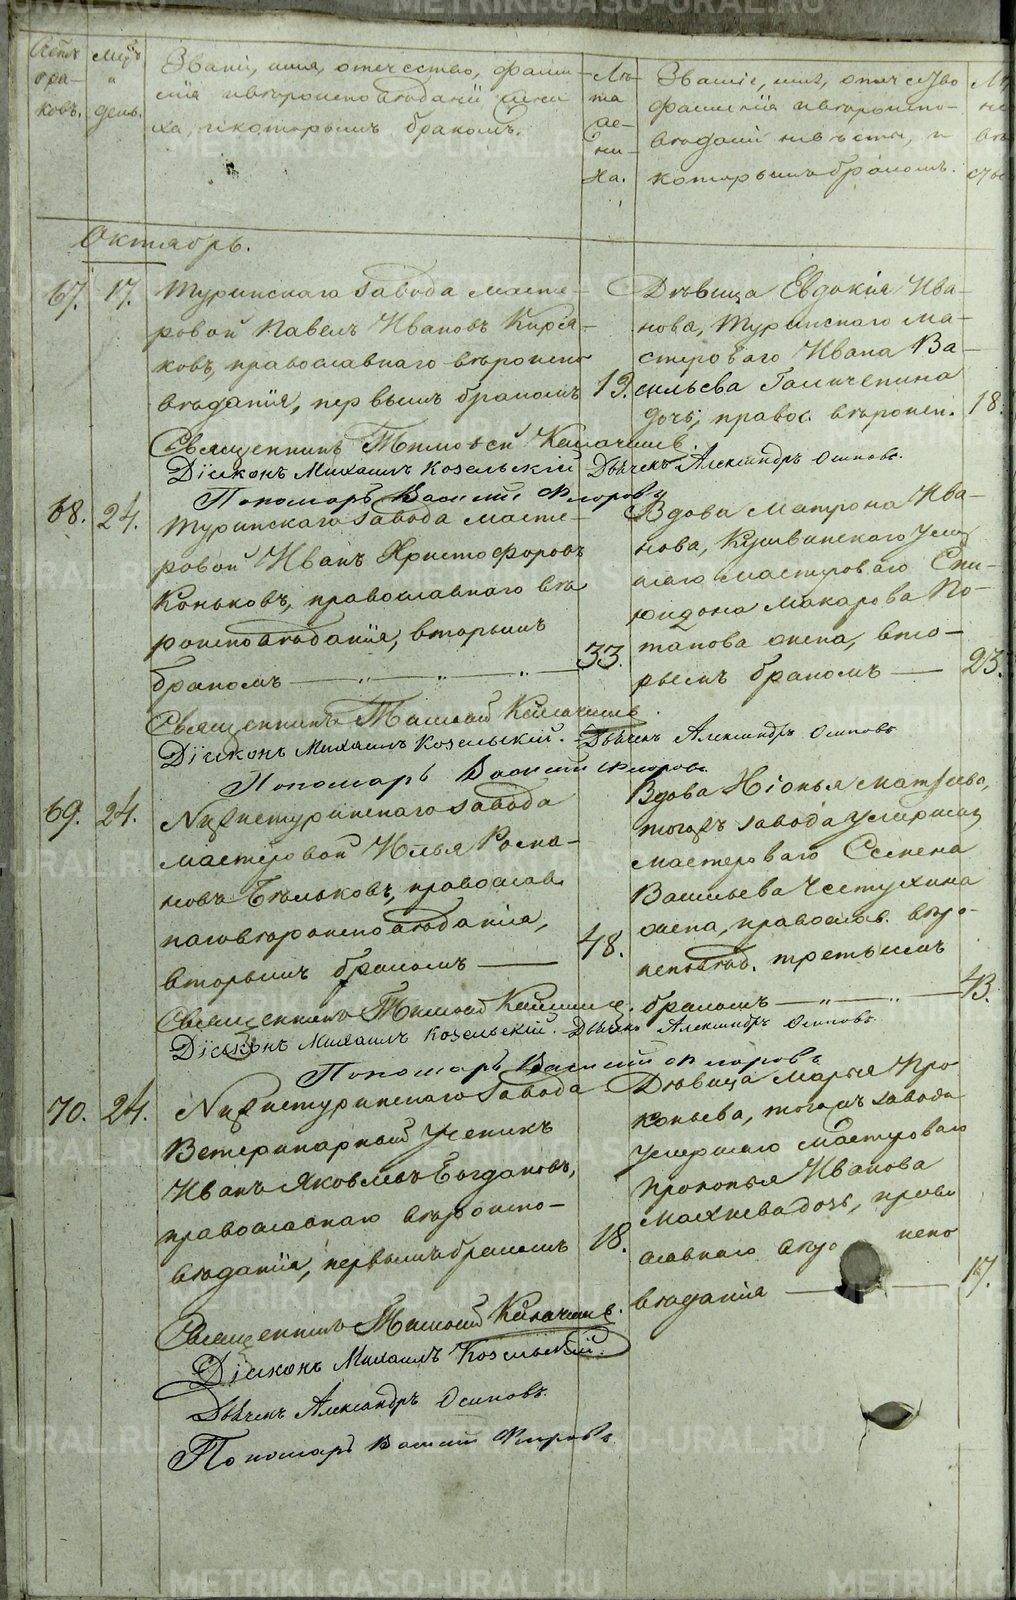 Счетъ
бра-
ковъ.
Мѣц.
и
день.
Званіе, имя, отчество, фами-
лія и вѣроисповѣданіе жени
ха, и которымъ бракомъ.
Лѣ-
та
же-
ни-
ха.
Званіе, имя, отчество
фамилія и вѣроиспо-
вѣданіе невѣсты, и
которымъ бракомъ.
Октябрь.
67. 17.
Туринскаго завода масте-
ровой Павелъ Ивановъ Кирса-
ковъ, православнаго вѣроиспо
вѣданія, первымъ бракомъ 19.
Дѣвица Евдокія Ива-
нова, Туринскаго ма-
стероваго Ивана Ва-
сильева Галичепина
дочь, правос. вѣроисп. 18.
Священникъ Тимофей
Діяконъ Михаилъ Козельскій Дьячекъ Александръ Осиповъ.
Пономарь Василій Флоровъ
68. 24.
Туринскаго завода масте-
ровой Иванъ Христофоровъ
Коньковъ, православнаго вѣ
роисповѣданія, вторымъ
бракомъ 33.
Вдова Матрона Ива-
нова, Кушвинскаго умер
шаго мастероваго Спи-
ридона Макарова По-
тапова жена, вто-
рымъ бракомъ 23.
Священникъ Тимофей
Діяконъ Михаилъ Козельскій. Дьячекъ Александръ Осиповъ
Пономарь Василій Флоровъ.
69. 24.
Нижнетуринскаго завода
мастеровой Илья Рома-
новъ Бѣльковъ, православ
наго вѣроисповѣданія,
вторымъ бракомъ 48.
Вдова Матвѣева,
тогожъ завода умершаго
мастероваго Семена
Васильева Честухина
жена, православ. вѣро-
исповѣд. третьимъ
бракомъ 43.
Священникъ Тимофей
Діяконъ Михаилъ Козельскій. Дьячекъ Александръ Осиповъ.
Пономарь Василій Флоровъ
70. 24.
Нижнетуринскаго завода
Ветеринарный ученикъ
Иванъ Яковлевъ Богдановъ,
православнаго вѣроиспо-
вѣданія, первымъ бракомъ 18.
Дѣвица Марья Про
копьева, тогожъ завода
умершаго мастероваго
Прокопья Иванова
Махнева дочь, право
славнаго вѣро испо
вѣданія 17.
Священникъ Тимофей
Діяконъ Михаилъ Козельскій.
Дьячекъ Александръ Осиповъ.
Пономарь Василій Флоровъ
METRIKI.GASO-URAL.RU